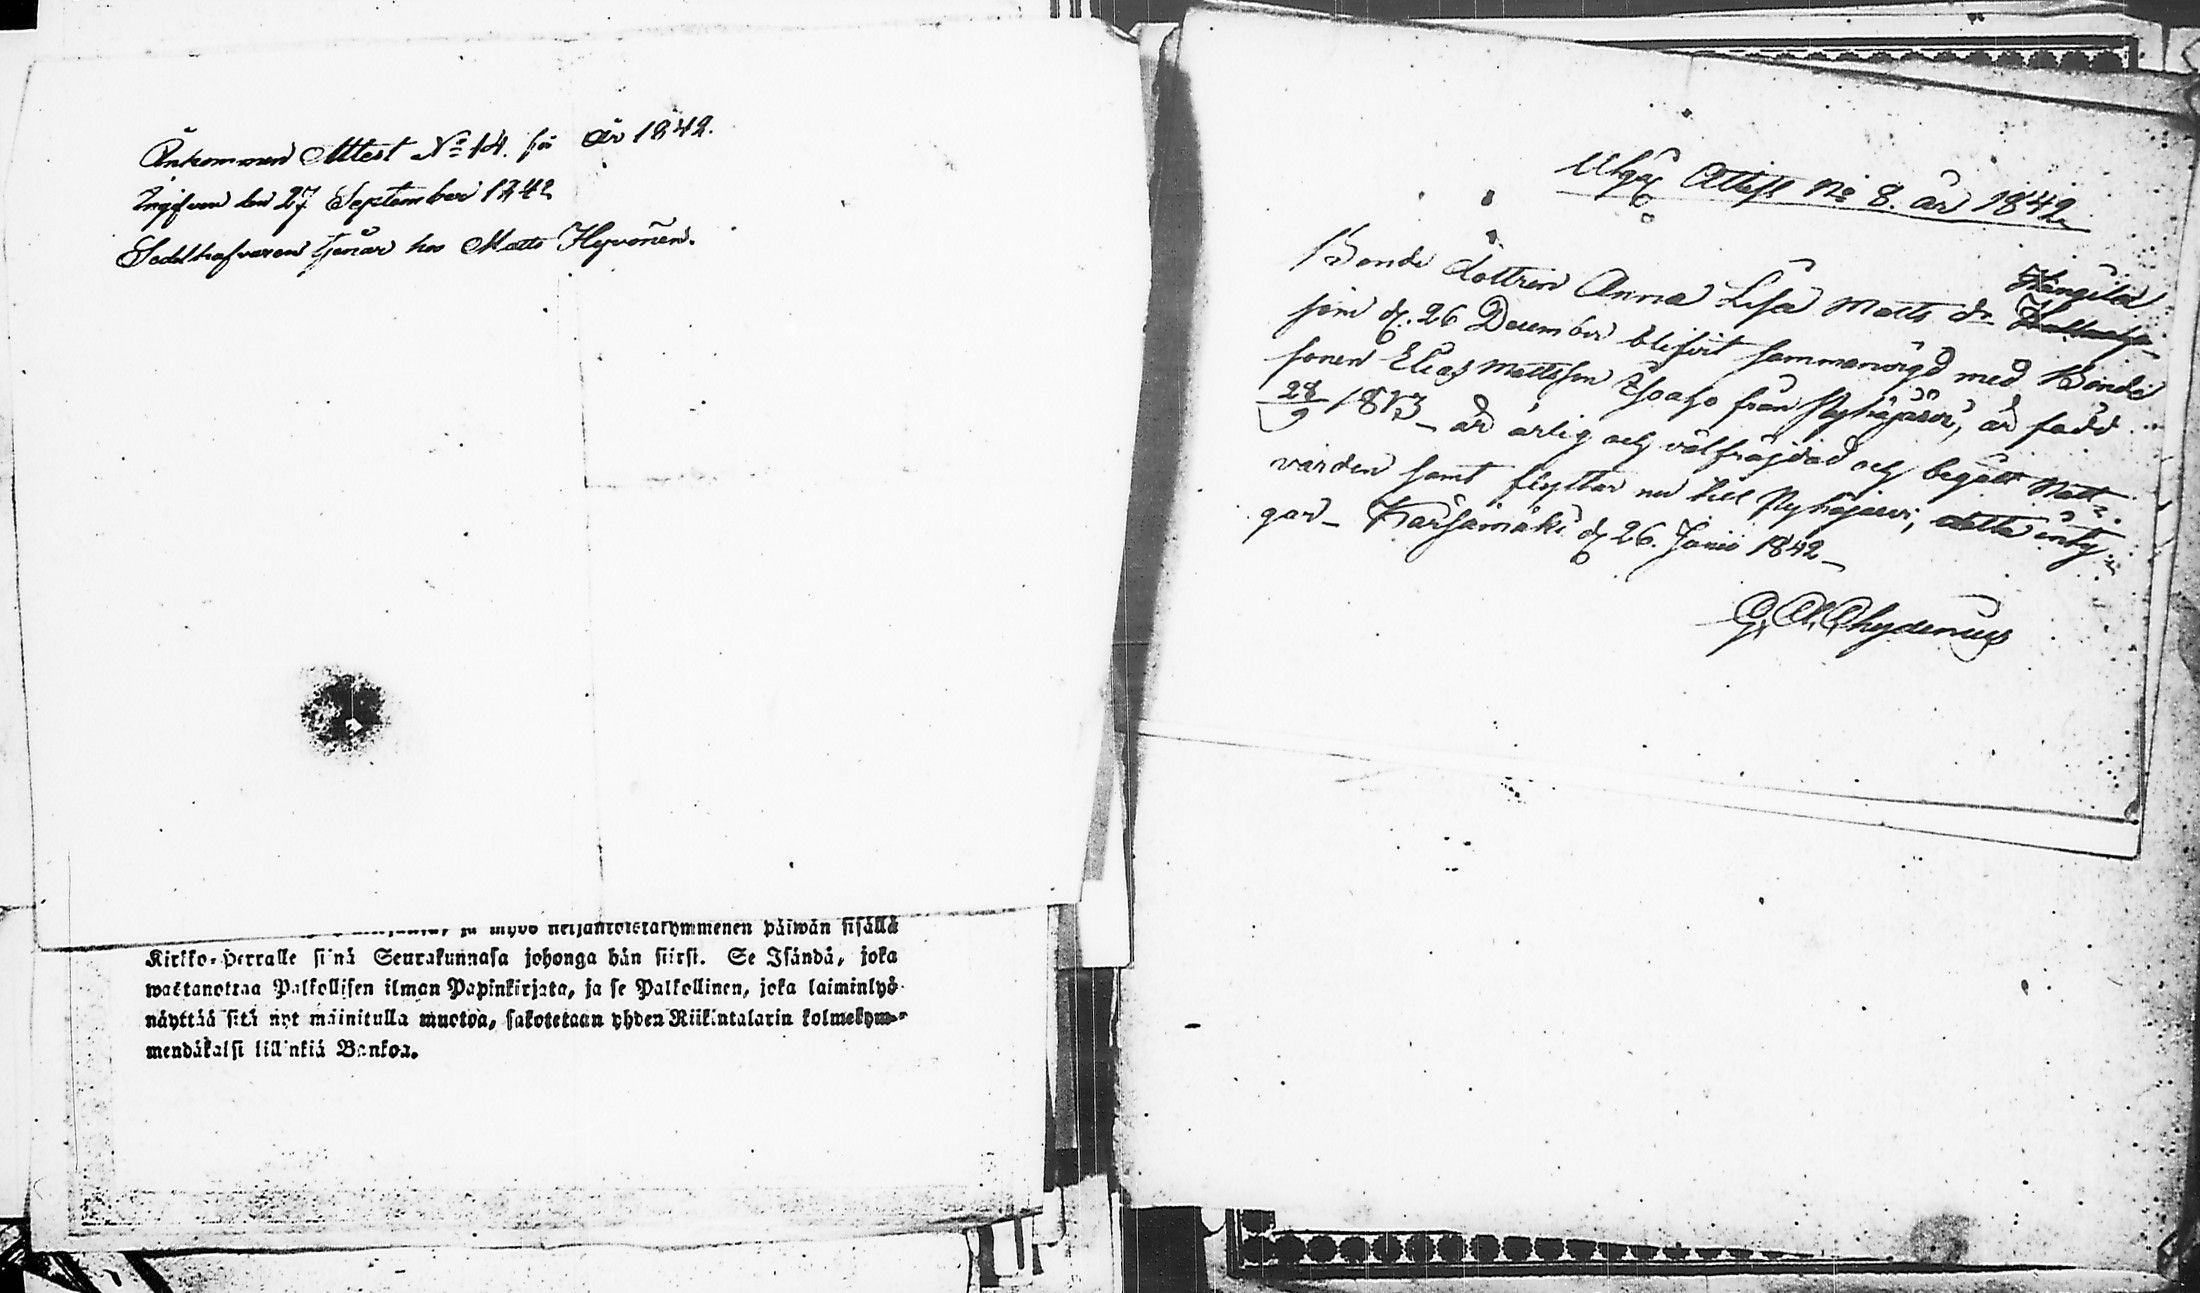 Ankommen Attest No 14. för år 1842.
Ingifven den 27 September 1842
Sedelhafvaren tjenar hos Matts Hyvönen.
päiwän sisällä
Kirkko-Herralle siinä Seurakunnasa johonga hän siirsi. Se Isändä, joka
wastanottaa Palkollisen ilman Papinkirjata, ja se Palkollinen, joka laiminlyö
näyttää sitä nyt mainitulla muotoa, sakotetaan yhden Riikintalarin kolmekym-
mendäkaksi killinkiä Bankoa.
Utgå Attest No 8. år 1842
Bonde dottren Anna Lisa Matts dr Kangila
som d. 26 December blifvit sammanvigd med Bonde
sonen Elias Mattsson Ahoaho från Pyhäjärvi, är född
28/9 1813 - är ärlig och välfräjdad och begått Natt-
varden samt flyttar nu till Pyhäjärvi, detta inty-
gar - Kärsämäki d. 26. Junii 1842 -
G. A. Chydenius